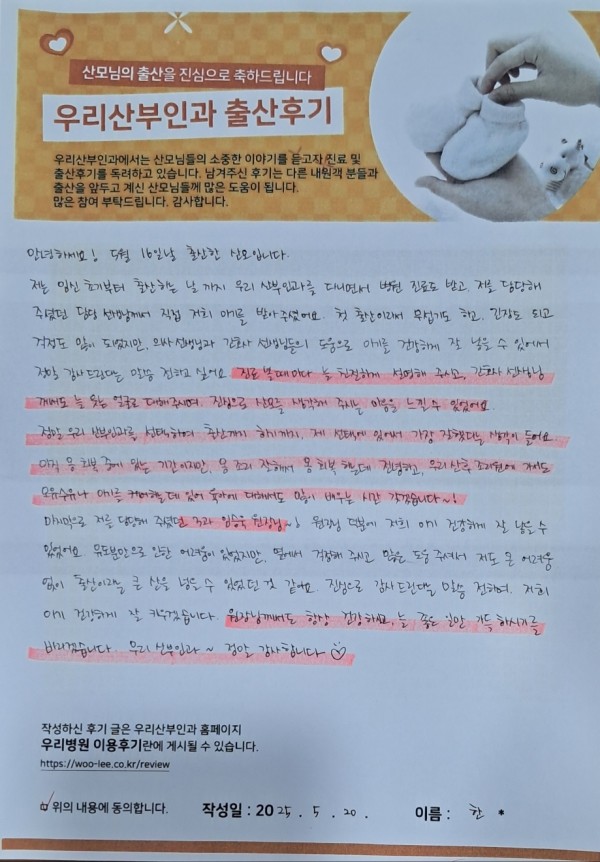 산모님의 출산을 진심으로 축하드립니다
우리산부인과 출산후기
우리산부인과에서는 산모님들의 소중한 이야기를 듣고자 진료 및
출산후기를 독려하고 있습니다. 남겨주신 후기는 다른 내원객 분들과
출산을 앞두고 계신 산모님들께 많은 도움이 됩니다.
많은 참여 부탁드립니다. 감사합니다.
안녕하세요! 5월 16일날 출산한 산모입니다.
저는 임신 초기부터 출산하는 날 까지 우리 산부인과를 다니면서 병원 진료도 받고 저를 담당해
주셨던 담당 선생님께서 직접 저희 아기를 받아주셨어요. 첫 출산이라서 무섭기도 하고, 긴장도 되고
걱정도 많이 되었지만, 의사선생님과 간호사 선생님들의 도움으로 아기를 건강하게 잘 낳을 수 있어서
정말 감사드린다는 말씀 전하고 싶어요. 진료 볼 때마다 늘 친절하게 설명해 주시고, 간호사 선생님
께서도 늘 웃는 얼굴로 대해주시며, 진심으로 산모를 생각해 주시는 마음을 느낄 수 있었어요.
정말 우리 산부인과를 선택하여 출산까지 하기까지, 제 선택에 있어서 가장 잘했다는 생각이 들어요.
아직 몸 회복 중에 있는 기간이지만, 몸 조리 잘해서 몸 회복하는데 전념하고, 우리 산후 조리원에 가서도
모유수유나 아기를 케어하는데 있어 육아에 대해서도 많이 배우는 시간 갖겠습니다~!
마지막으로 저를 담당해 주셨던 3과 임승욱 원장님~! 원장님 덕분에 저희 아기 건강하게 잘 낳을 수
있었어요. 유도분만으로 인한 어려움이 있었지만, 옆에서 걱정해 주시고 많은 도움 주셔서 저도 큰 어려움
없이 출산이라는 큰 산을 넘을 수 있었던 것 같아요. 진심으로 감사드린다는 말씀 전하며, 저희
아기 건강하게 잘 키우겠습니다. 원장님께서도 항상 건강하시고, 늘 좋은 일만 가득하시기를
바라겠습니다. 우리 산부인과~ 정말 감사합니다
작성하신 후기 글은 우리산부인과 홈페이지
우리병원 이용후기란에 게시될 수 있습니다.
https://woo-lee.co.kr/review
위의 내용에 동의합니다. 작성일 : 2025. 5. 20. 이름 : 한 *